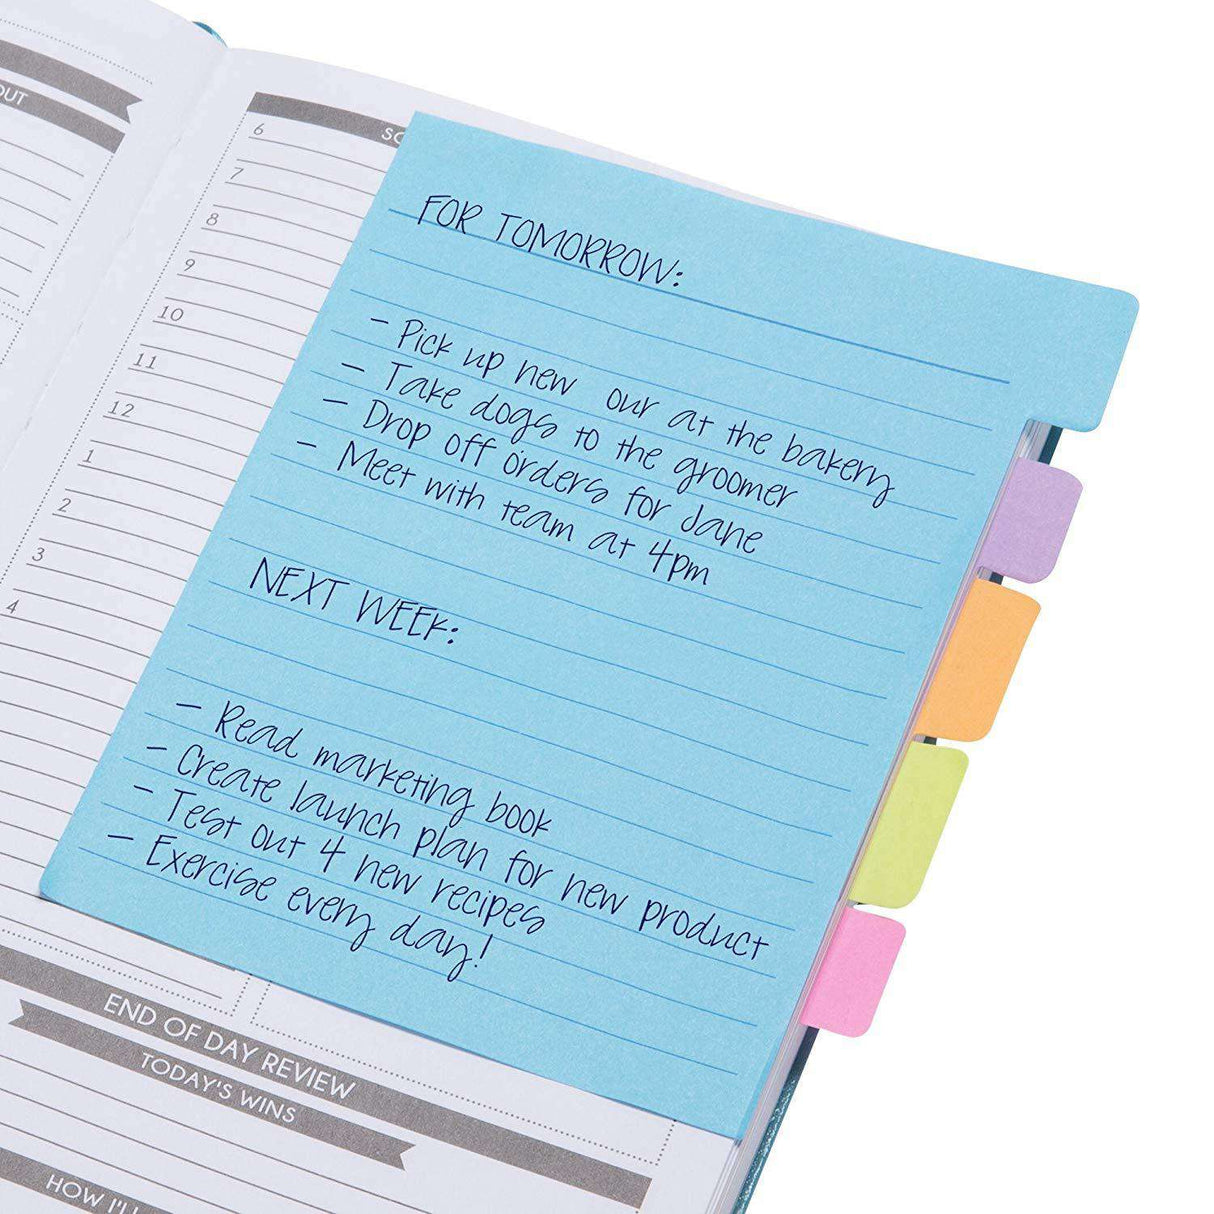 OUT
6
7
8
9
10
11
12
1
2
3
4
FOR TOMORROW:
- Pick up new our at the bakery
- Take dogs to the groomer
- Drop off orders for Jane
- Meet with team at 4pm
NEXT WEEK:
- Read marketing book
- Create launch plan for new product
- Test out 4 new recipes
- Exercise every day!
END OF DAY REVIEW
TODAY'S WINS
HOW I'LL